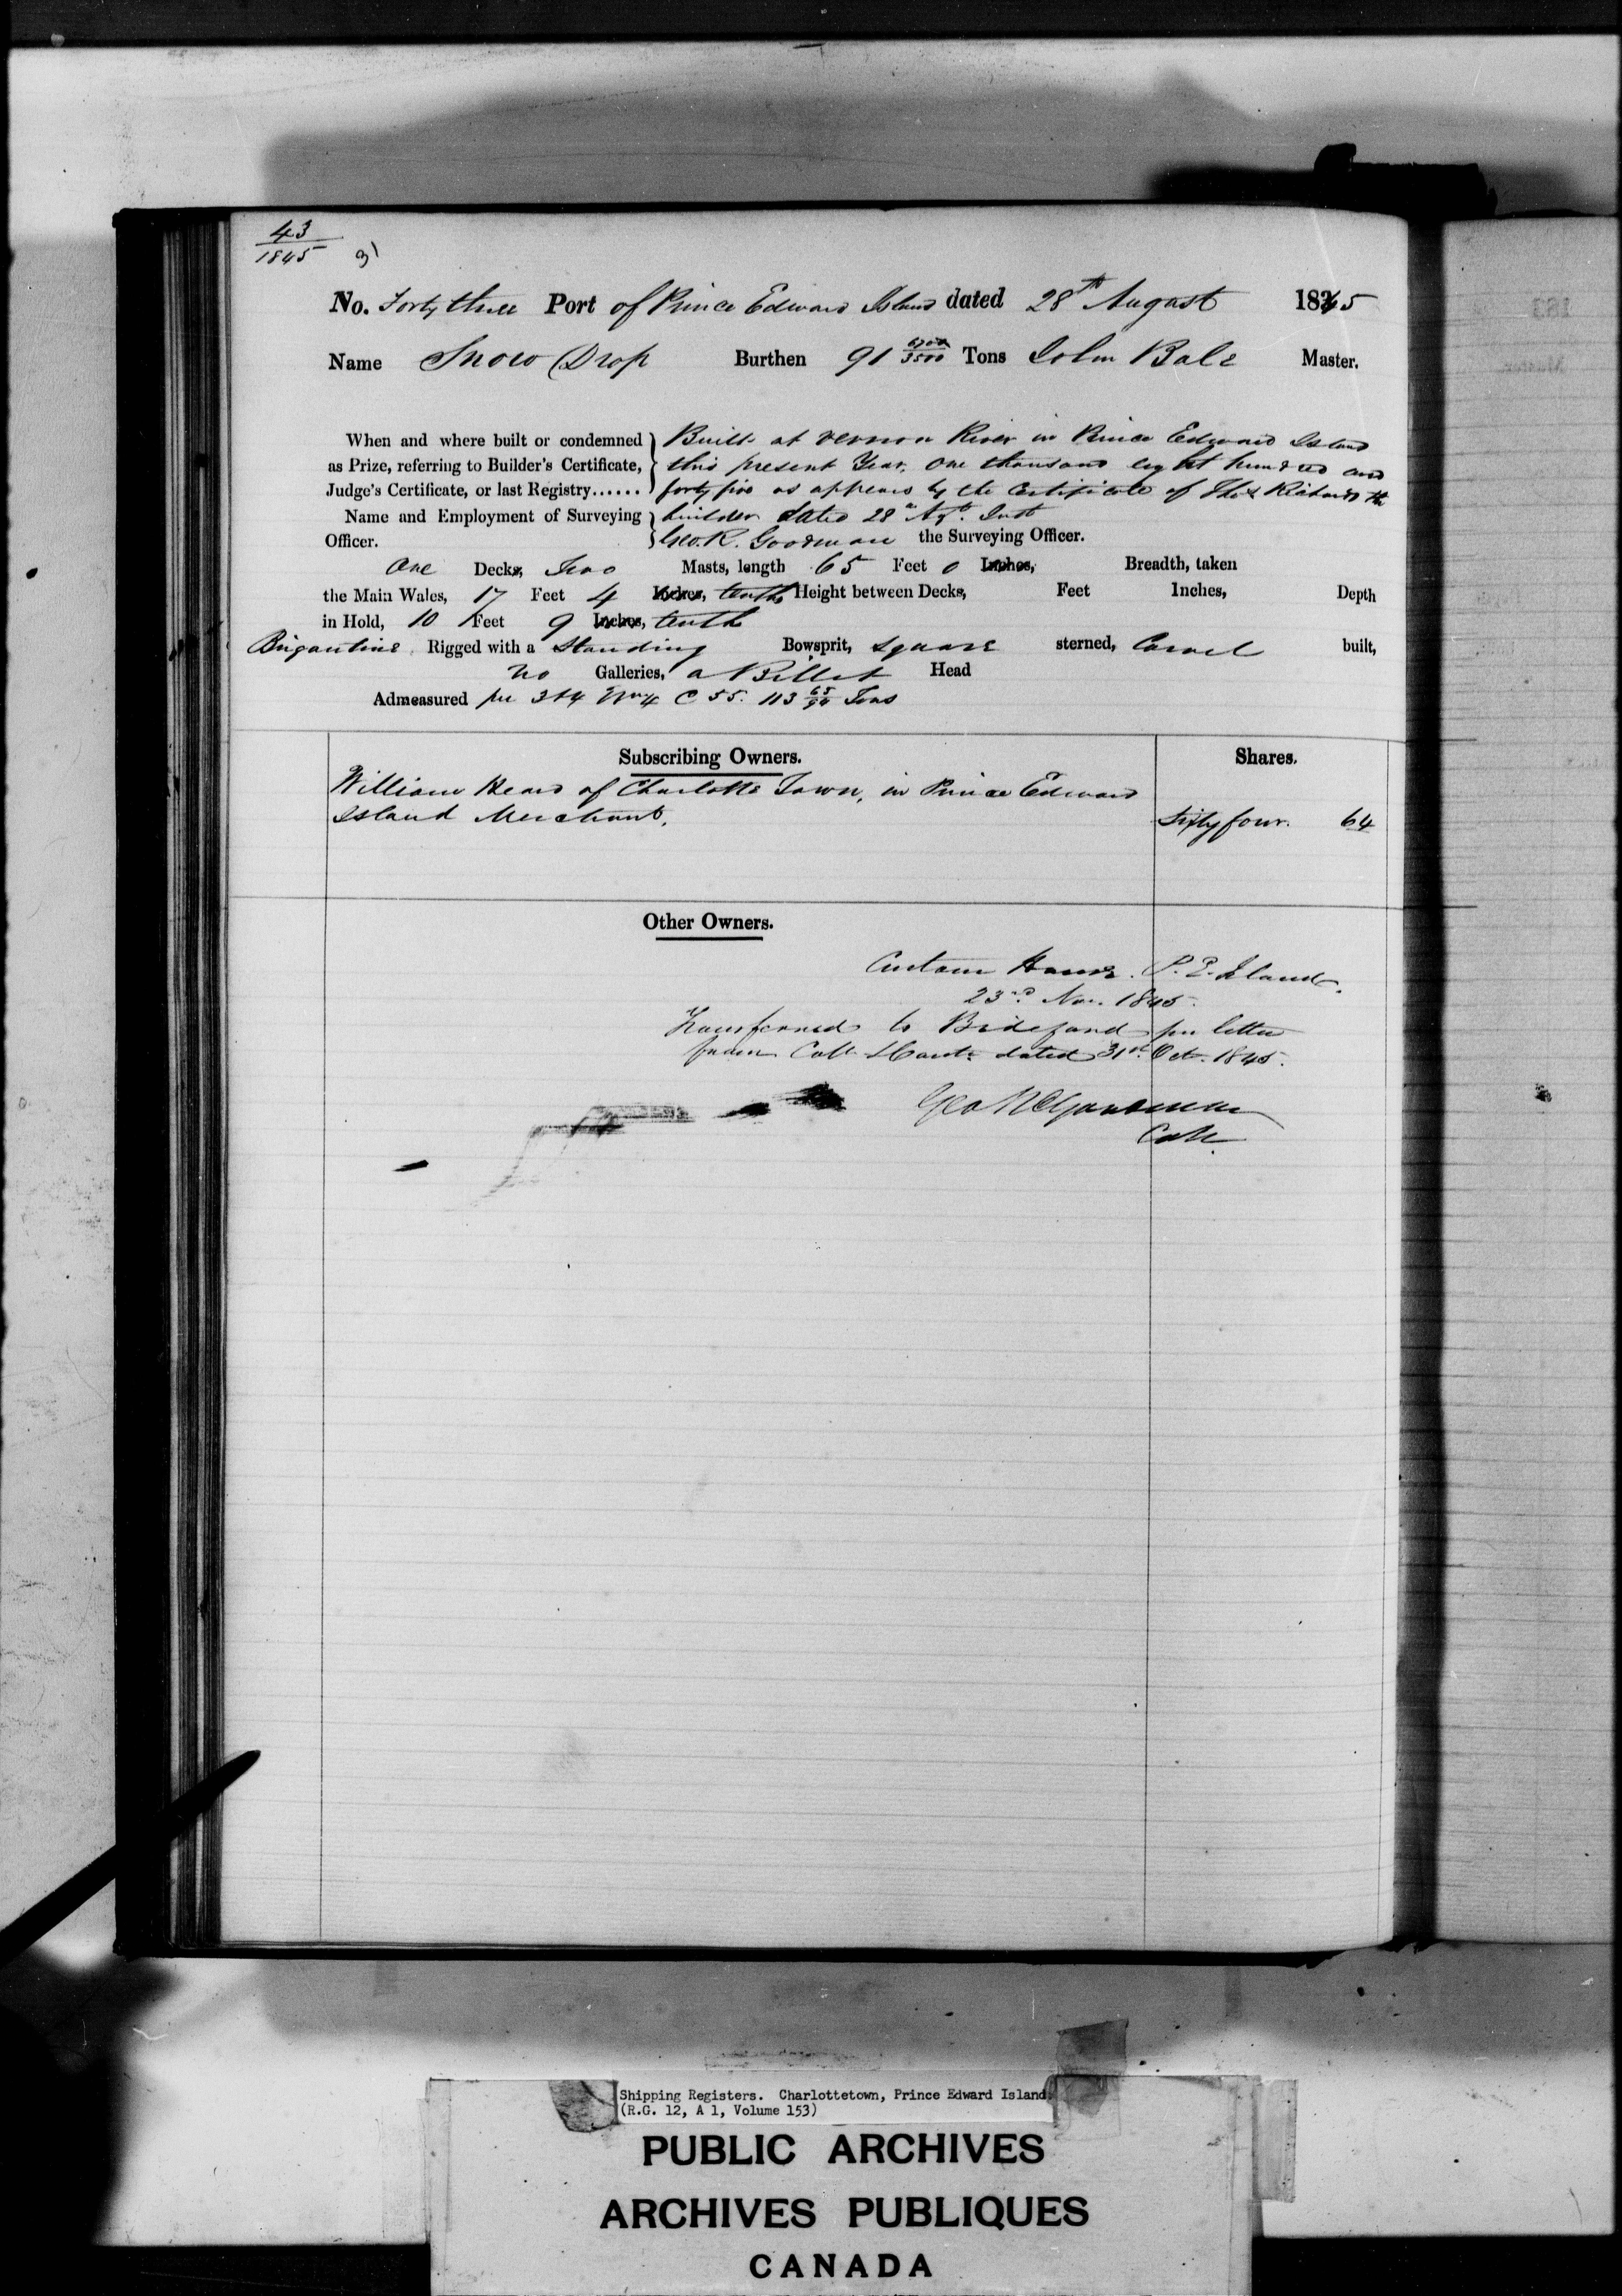 43
1845
No. Forty three Port of Prince Edward Island dated 28th August 1845
Name Snow Drop Burthen 91 Tons John Bale Master.
When and where built or condemned } Built at Vernon River in Prince Edward Island
as Prize, referring to Builder's Certificate, { this present Year, One thousand eight hundred and
Judge's Certificate, or last Registry...... } forty five as appears by the Certificate of Thos Richards the
Name and Employment of Surveying } builder dated 28th Augt. Inst
Officer. } Geo. R. Goodman the Surveying Officer.
One Decks, Two Masts, length 65 Feet 0 Inches, Breadth, taken
the Main Wales, 17 Feet 4 Inches, tenths Height between Decks, Feet Inches, Depth
in Hold, 10 Feet 9 Inches, tenths
Brigantine Rigged with a Standing Bowsprit, Square sterned, Carvel built,
No Galleries, a Billet Head
Admeasured per 3 & 4 Wm 4 C 55. 113 65/94 Tons
Subscribing Owners. Shares.
William Heard of Charlotte Town, in Prince Edward
Island Merchant. Sixty four. 64
Other Owners.
Custom House. P. E. Island.
23rd Nov. 1845.
Transferred to Bideford per letter
from Collr & Contr dated 31st Oct. 1845.
Geo R Goodman
Collr
183
Master.
Shipping Registers. Charlottetown, Prince Edward Island
(R.G. 12, A 1, Volume 153)
PUBLIC ARCHIVES
ARCHIVES PUBLIQUES
CANADA